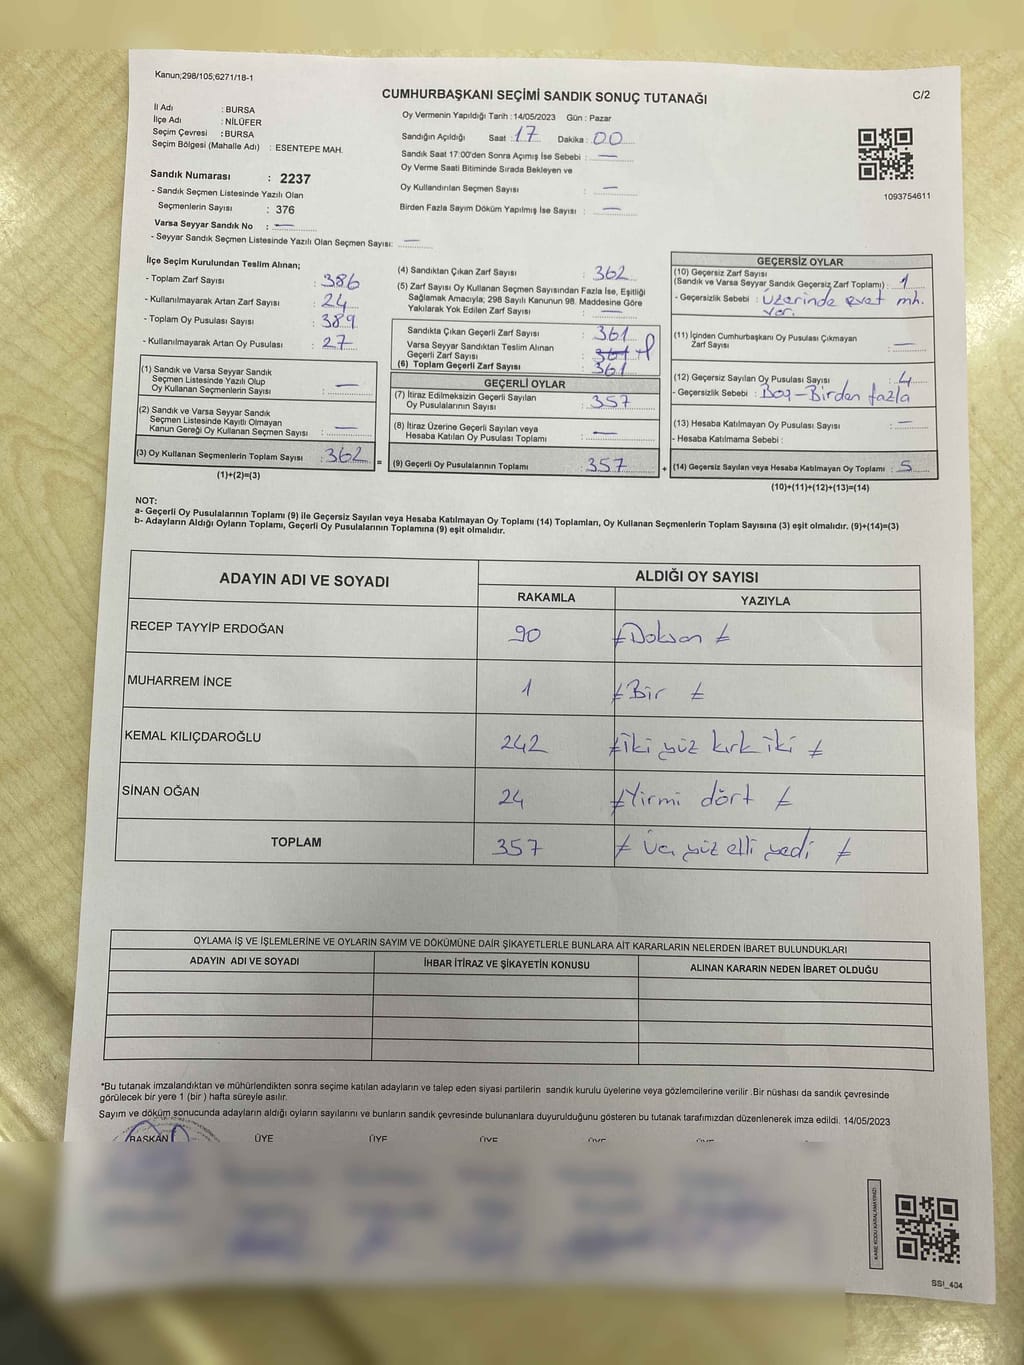 Kanun;298/105;6271/18-1
CUMHURBAŞKANI SEÇİMİ SANDIK SONUÇ TUTANAĞI
C/2
İl Adı : BURSA
İlçe Adı : NİLÜFER
Seçim Çevresi : BURSA
Seçim Bölgesi (Mahalle Adı) : ESENTEPE MAH.
Sandık Numarası : 2237
- Sandık Seçmen Listesinde Yazılı Olan
Seçmenlerin Sayısı : 376
Varsa Seyyar Sandık No : —
- Seyyar Sandık Seçmen Listesinde Yazılı Olan Seçmen Sayısı: —
Oy Vermenin Yapıldığı Tarih :14/05/2023 Gün : Pazar
Sandığın Açıldığı Saat : 17 Dakika : 00
Sandık Saat 17:00'den Sonra Açımış İse Sebebi : —
Oy Verme Saati Bitiminde Sırada Bekleyen ve
Oy Kullandırılan Seçmen Sayısı : —
Birden Fazla Sayım Döküm Yapılmış İse Sayısı : —
1093754611
İlçe Seçim Kurulundan Teslim Alınan;
- Toplam Zarf Sayısı : 386
- Kullanılmayarak Artan Zarf Sayısı : 24
- Toplam Oy Pusulası Sayısı : 389
- Kullanılmayarak Artan Oy Pusulası : 27
(1) Sandık ve Varsa Seyyar Sandık
Seçmen Listesinde Yazılı Olup
Oy Kullanan Seçmenlerin Sayısı : —
(2) Sandık ve Varsa Seyyar Sandık
Seçmen Listesinde Kayıtlı Olmayan
Kanun Gereği Oy Kullanan Seçmen Sayısı : —
(3) Oy Kullanan Seçmenlerin Toplam Sayısı : 362
(1)+(2)=(3)
(4) Sandıktan Çıkan Zarf Sayısı : 362
(5) Zarf Sayısı Oy Kullanan Seçmen Sayısından Fazla İse, Eşitliği
Sağlamak Amacıyla; 298 Sayılı Kanunun 98. Maddesine Göre
Yakılarak Yok Edilen Zarf Sayısı : —
Sandıkta Çıkan Geçerli Zarf Sayısı : 361
Varsa Seyyar Sandıktan Teslim Alınan
Geçerli Zarf Sayısı : 361
(6) Toplam Geçerli Zarf Sayısı : 361
GEÇERLİ OYLAR
(7) İtiraz Edilmeksizin Geçerli Sayılan
Oy Pusulalarının Sayısı : 357
(8) İtiraz Üzerine Geçerli Sayılan veya
Hesaba Katılan Oy Pusulası Toplamı : —
= (9) Geçerli Oy Pusulalarının Toplamı : 357
GEÇERSİZ OYLAR
(10) Geçersiz Zarf Sayısı
(Sandık ve Varsa Seyyar Sandık Geçersiz Zarf Toplamı) : 1
- Geçersizlik Sebebi : Üzerinde evet mh.
var.
(11) İçinden Cumhurbaşkanı Oy Pusulası Çıkmayan
Zarf Sayısı : —
(12) Geçersiz Sayılan Oy Pusulası Sayısı : 4
- Geçersizlik Sebebi : Boş-Birden fazla
(13) Hesaba Katılmayan Oy Pusulası Sayısı : —
- Hesaba Katılmama Sebebi :
+ (14) Geçersiz Sayılan veya Hesaba Katılmayan Oy Toplamı : 5
(10)+(11)+(12)+(13)=(14)
NOT:
a- Geçerli Oy Pusulalarının Toplamı (9) ile Geçersiz Sayılan veya Hesaba Katılmayan Oy Toplamı (14) Toplamları, Oy Kullanan Seçmenlerin Toplam Sayısına (3) eşit olmalıdır. (9)+(14)=(3)
b- Adayların Aldığı Oyların Toplamı, Geçerli Oy Pusulalarının Toplamına (9) eşit olmalıdır.
ADAYIN ADI VE SOYADI
ALDIĞI OY SAYISI
RAKAMLA YAZIYLA
RECEP TAYYİP ERDOĞAN 90 ≠ Doksan ≠
MUHARREM İNCE 1 ≠ Bir ≠
KEMAL KILIÇDAROĞLU 242 ≠ İki yüz kırk iki ≠
SİNAN OĞAN 24 ≠ Yirmi dört ≠
TOPLAM 357 ≠ Üç yüz elli yedi ≠
OYLAMA İŞ VE İŞLEMLERİNE VE OYLARIN SAYIM VE DÖKÜMÜNE DAİR ŞİKAYETLERLE BUNLARA AİT KARARLARIN NELERDEN İBARET BULUNDUKLARI
ADAYIN ADI VE SOYADI İHBAR İTİRAZ VE ŞİKAYETİN KONUSU ALINAN KARARIN NEDEN İBARET OLDUĞU
*Bu tutanak imzalandıktan ve mühürlendikten sonra seçime katılan adayların ve talep eden siyasi partilerin sandık kurulu üyelerine veya gözlemcilerine verilir .Bir nüshası da sandık çevresinde
görülecek bir yere 1 (bir ) hafta süreyle asılır.
Sayım ve döküm sonucunda adayların aldığı oyların sayılarını ve bunların sandık çevresinde bulunanlara duyurulduğunu gösteren bu tutanak tarafımızdan düzenlenerek imza edildi. 14/05/2023
BAŞKAN ÜYE ÜYE ÜYE ÜYE ÜYE
KARE KODU KARALAMAYINIZ!
SSI_404